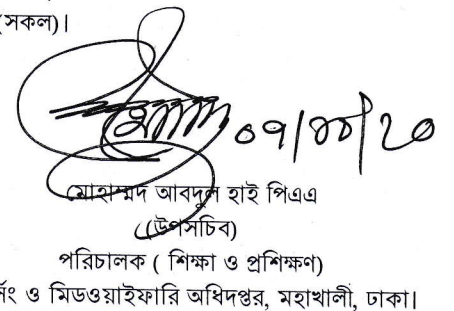 (সকল)।
০৭/১০/২০
মোহাম্মদ আবদুল হাই পিএএ
(উপসচিব)
পরিচালক ( শিক্ষা ও প্রশিক্ষণ)
ও মিডওয়াইফারি অধিদপ্তর, মহাখালী, ঢাকা।